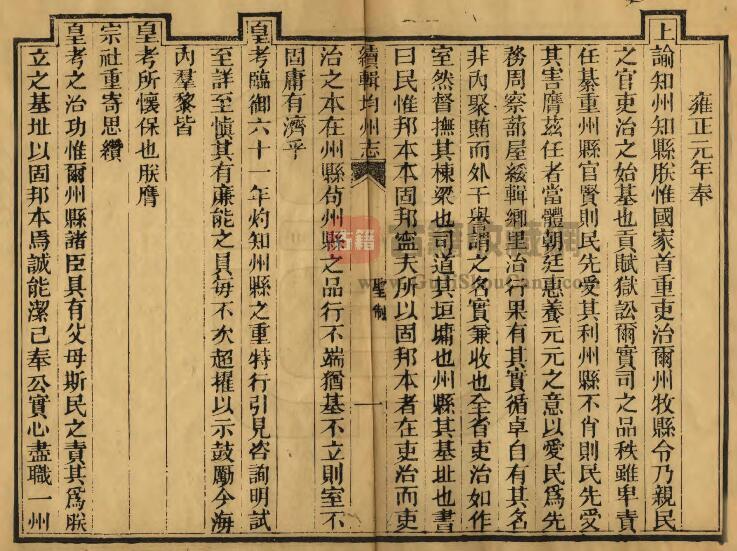 雍正元年奉
上諭知州知縣朕惟國家首重吏治爾州牧縣令乃親民
之官吏治之始基也貢賦獄訟爾實司之品秩雖卑責
任綦重州縣官賢則民先受其利州縣不肖則民先受
其害膺茲任者當體朝廷惠養元元之意以愛民為先
務周察蔀屋綏輯鄉里治行果有其實循卓自有其名
非內聚賄而外干譽謂之名實兼收也全省吏治如作
室然督撫其棟梁也司道其垣墉也州縣其基址也書
曰民惟邦本本固邦寧夫所以固邦本者在吏治而吏
續輯均州志
聖制
一
治之本在州縣苟州縣之品行不端猶基不立則室不
固庸有濟乎
皇考臨御六十一年灼知州縣之重特行引見咨詢明試
至詳至慎其有廉能之員每不次超擢以示鼓勵今海
內羣黎皆
皇考所懷保也朕膺
宗社重寄思纘
皇考之治功惟爾州縣諸臣具有父母斯民之責其為朕
立之基址以固邦本焉誠能潔己奉公實心盡職一州
古籍